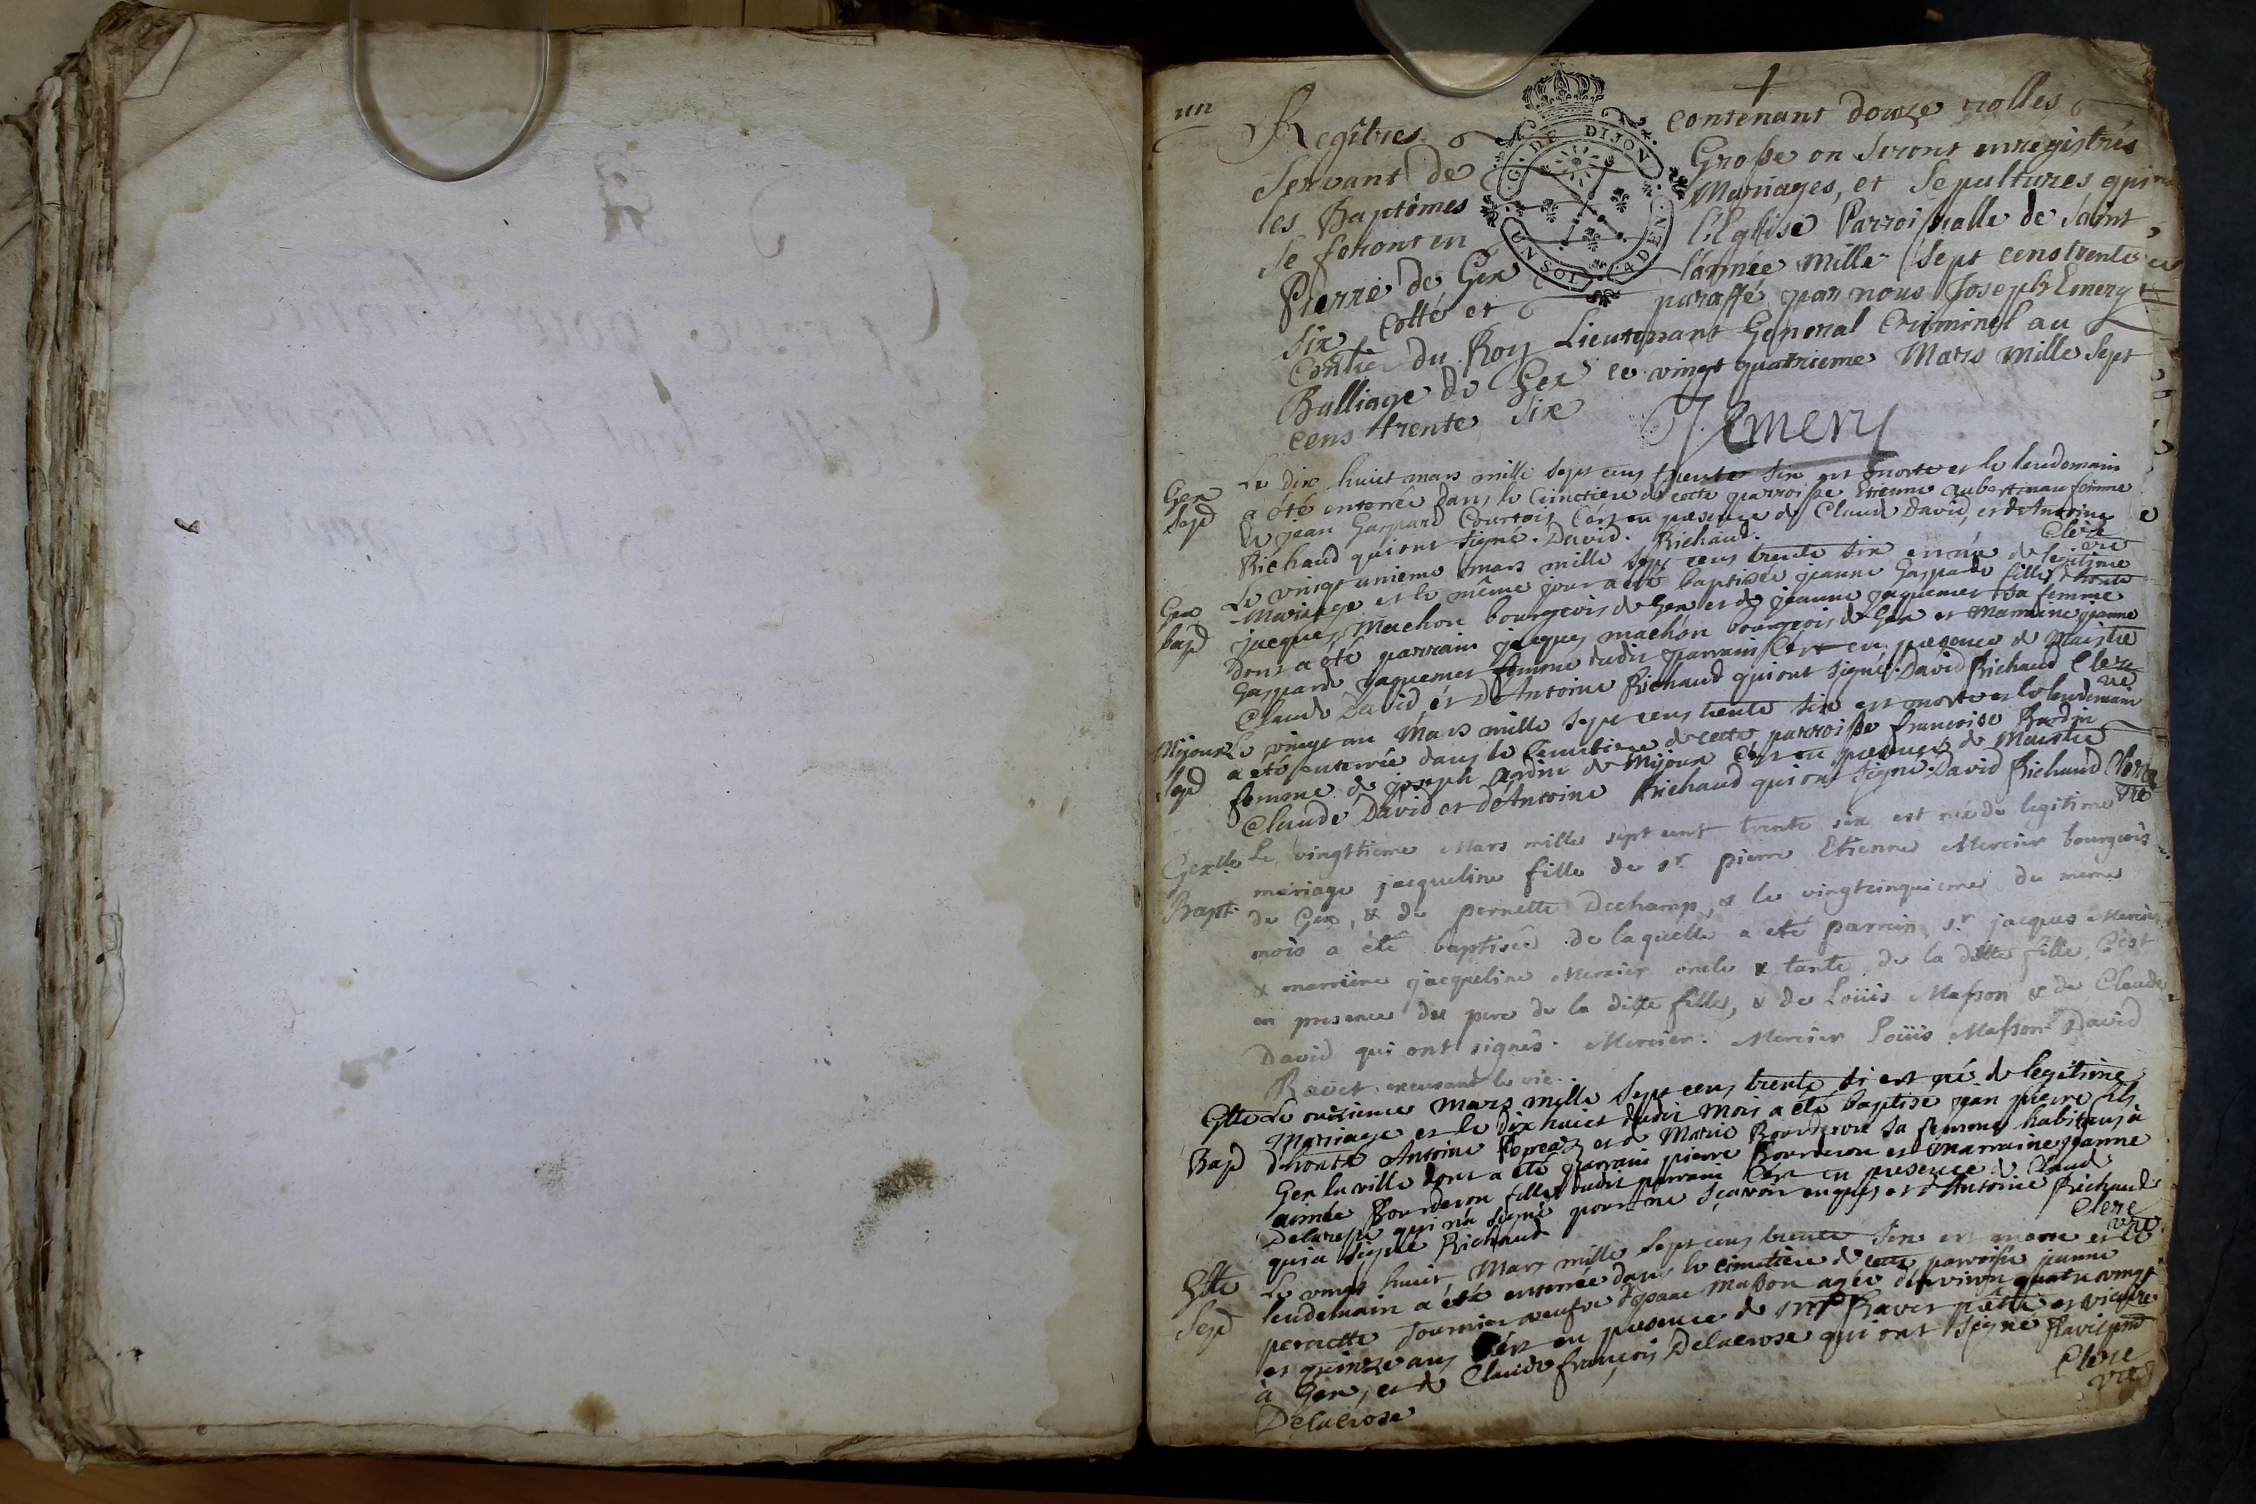 un
Regîtres contenant douze rolles
Servant de Grosse on Seront enregistrés
les Baptêmes Mariages, et Sepultures qui
Se feront en l'Eglise Parroissialle de Saint
Pierre de Gex l'année mille Sept cens trente
Six Cotté et paraffé par nous Joseph Emery
Conlier du Roy Lieutenant General Criminel au
Balliage de Gex ce vingt quatrieme Mars mille Sept
cens trente Six
J Emery
G. DE DIJON
UN SOL 4 DEN
Gex
Sepd
Le dix huict mars mille Sept cens trente Six est morte et le lendemain
a été enterrée dans le Cimetiere de cette parroisse Etienne femme
de jean Gaspard Courtois C'est en presence de Claude David, et d'Antoine
Richaud qui ont Signé. David. Richaud.
Gex
bapd
Le vingt unieme mars mille Sept cens trente Six est née de legitime
Mariage et le même jour a été baptisée jeanne Gasparde fille d'honte
jacques Machon bourgeois de Gex et de jeanne jaquemet sa femme
Dont a été parrain jacques machon bourgeois de Gex et Marraine jeanne
Gasparde jaquemet femme dudit parrain C'est en presence de Maistre
Claude David, et d'Antoine Richaud qui ont Signé. David Richaud
Mijoux
Sepd
Le vingt un Mars mille Sept cens trente Six est morte et le lendemain
a été enterrée dans le Cimetiere de cette parroisse francoise
femme de joseph de Mijoux C'est en presence de Maistre
Claude David et d'Antoine Richaud qui ont Signé. David Richaud
Gex
Bapt.
Le vingttieme Mars mille sept cent trente six est née de legitime
mariage jacqueline fille de sr. pierre Etienne Mercier bourgeois
de Gex, & de pernette Dechamp, & le vingtcinquieme du meme
mois a été baptisée de laquelle a eté parrein, sr. jacques Mercier
& marreine jacqueline Mercier oncle & tante de la ditte fille, C'est
en presence du pere de la ditte fille, & de Loüis Masson & de Claude
David qui ont signés. Mercier. Mercier Loüis Masson David
Ravet
Bapd
Le onzieme Mars mille Sept cens trente Si est né de legitime
Mariage et le dix huict dudit Mois a été baptisé jean pierre fils
d'honte Antoine et de Marie Bourderon Sa femme habitans à
Gex la ville dont a été parrain pierre Bourderon et Marraine jeanne
aimée Bourderon fille dudit parrain C'est en presence de Claude
Delacrose qui n'a Signé pour ne Sçavoir enquis et d'Antoine Richaud
qui a Signé Richaud
Sepd
Le vingt huit Mars mille Sept cens trente Six est morte et le
lendemain a été enterrée dans le cimetiere de cette parroisse jeanne
pernette fournier veufve d'Isaac Masson agée d'environ quatre vingt
et quinze ans C'est en presence de Ravet prêtre et vicaire
à Gex, et de Claude françois Delacrose qui ont Signé
Delacrose